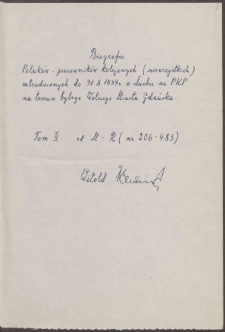 Biografie
Polaków - pracowników kolejowych (niewszystkich)
zatrudnionych do 31.8.1939r. w służbie na PKP
na terenie byłego Wolnego Miasta Gdańska.
Tom II od M - R (nr 206-483)
Witold